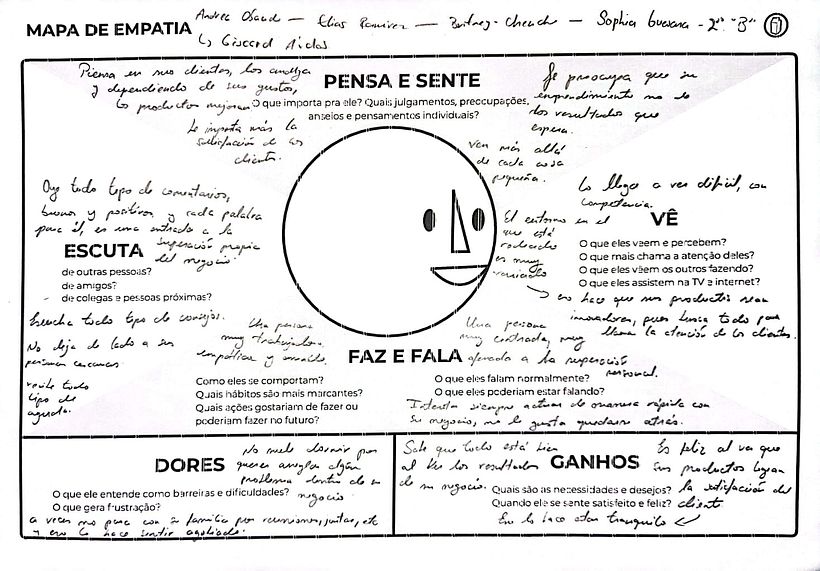 MAPA DE EMPATIA
Elias Ramirez — Britney — Sophia Guevara - 2° "B"
Piensa en sus clientes, los analiza
y dependiendo de sus gustos,
los productos mejoran
Le importa más la
satisfacción de los
clientes.
PENSA E SENTE
O que importa pra ele? Quais julgamentos, preocupações,
anseios e pensamentos individuais?
Le preocupa que su
emprendimiento no le
los resultados que
espera.
Ven más allá
de cada cosa
pequeña.
Oye todo tipo de comentarios,
buenos y positivos, y cada palabra
para él, es una entrada a la
superación propia
del negocio
ESCUTA
de outras pessoas?
de amigos?
de colegas e pessoas próximas?
Escucha todo tipo de consejos.
No deja de lado a sus
personas cercanas
recibe todo
tipo de
ayuda.
Lo llega a ver difícil, con
competencia.
El entorno en el
que está
rodeado
es muy
variado
VÊ
O que eles vêem e percebem?
O que mais chama a atenção deles?
O que eles vêem os outros fazendo?
O que eles assistem na TV e internet?
eso hace que sus productos sean
innovadores, pues busca todo para
llamar la atención de los clientes.
Una persona
muy trabajadora,
empática y amable.
FAZ E FALA
Una persona
muy centrada, muy
aferrada a la superación
personal.
Como eles se comportam?
Quais hábitos são mais marcantes?
Quais ações gostariam de fazer ou
poderiam fazer no futuro?
O que eles falam normalmente?
O que eles poderiam estar falando?
Intenta siempre actuar de manera rápida con
su negocio, no le gusta quedarse atrás.
DORES
No suele dormir por
querer arreglar algún
problema dentro de su
negocio
O que ele entende como barreiras e dificuldades?
O que gera frustração?
a veces no pasa con su familia por reuniones, juntas, etc
y eso lo hace sentir agobiado.
Sabe que todo está bien
al ver los resultados
de su negocio.
GANHOS
Quais são as necessidades e desejos?
Quando ele se sente satisfeito e feliz?
Es feliz al ver que
sus productos logran
la satisfacción del
cliente
Eso lo hace estar tranquilo